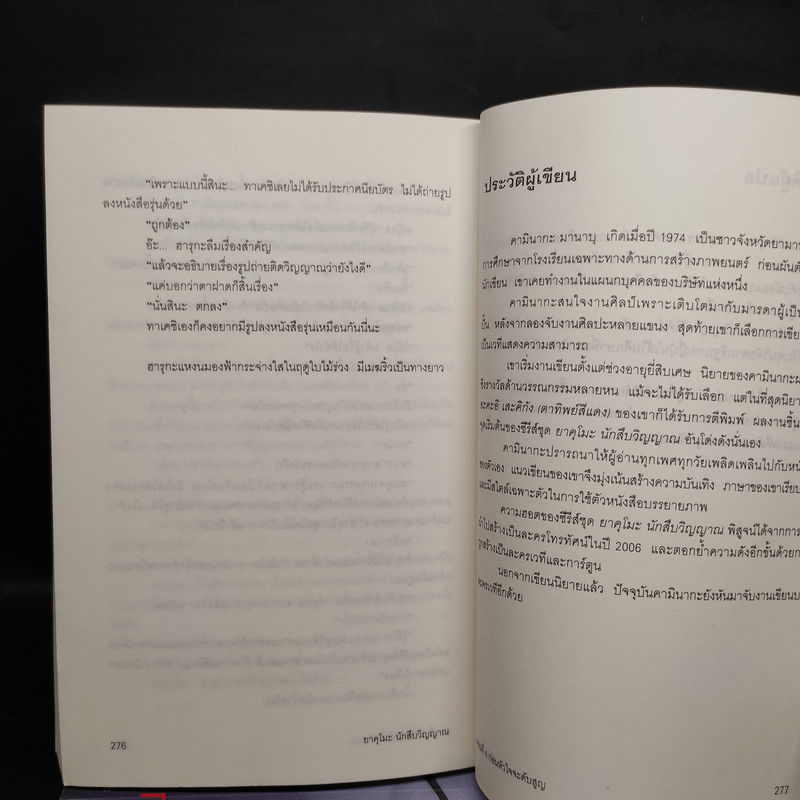 “เพราะแบบนี้สินะ... ทาเคชิเลยไม่ได้รับประกาศนียบัตร ไม่ได้ถ่ายรูป
ลงหนังสือรุ่นด้วย”
“ถูกต้อง”
อ๊ะ... ฮารุกะลืมเรื่องสำคัญ
“แล้วจะอธิบายเรื่องรูปถ่ายติดวิญญาณว่ายังไงดี”
“แค่บอกว่าตาฝาดก็สิ้นเรื่อง”
“นั่นสินะ ตกลง”
ทาเคชิเองก็คงอยากมีรูปลงหนังสือรุ่นเหมือนกันนี่นะ
ฮารุกะแหงนมองฟ้ากระจ่างใสในฤดูใบไม้ร่วง มีเมฆริ้วเป็นทางยาว
276
ยาคุโมะ นักสืบวิญญาณ
ประวัติผู้เขียน
คามินากะ มานาบุ เกิดเมื่อปี 1974 เป็นชาวจังหวัดยามาน
การศึกษาจากโรงเรียนเฉพาะทางด้านการสร้างภาพยนตร์ ก่อนผันตั
นักเขียน เขาเคยทำงานในแผนกบุคคลของบริษัทแห่งหนึ่ง
คามินากะสนใจงานศิลป์เพราะเติบโตมากับมารดาผู้เป็
ปั้น หลังจากลองจับงานศิลปะหลายแขนง สุดท้ายเขาก็เลือกการเขีย
เป็นเวทีแสดงความสามารถ
เขาเริ่มงานเขียนตั้งแต่ช่วงอายุยี่สิบเศษ นิยายของคามินากะผ
ชิงรางวัลด้านวรรณกรรมหลายหน แม้จะไม่ได้รับเลือก แต่ในที่สุดนิยา
อะคะอิ เสะคิกัง (ตาทิพย์สีแดง) ของเขาก็ได้รับการตีพิมพ์ ผลงานชิ้น
จุดเริ่มต้นของซีรีส์ชุด ยาคุโมะ นักสืบวิญญาณ อันโด่งดังนั่นเอง
คามินากะปรารถนาให้ผู้อ่านทุกเพศทุกวัยเพลิดเพลินไปกับหนั
ของตัวเอง แนวเขียนของเขาจึงมุ่งเน้นสร้างความบันเทิง ภาษาของเขาเรียบ
และมีสไตล์เฉพาะตัวในการใช้ตัวหนังสือบรรยายภาพ
ความฮอตของซีรีส์ชุด ยาคุโมะ นักสืบวิญญาณ พิสูจน์ได้จากการ
นำไปสร้างเป็นละครโทรทัศน์ในปี 2006 และตอกย้ำความดังอีกขั้นด้วยก
ถูกสร้างเป็นละครเวทีและการ์ตูน
นอกจากเขียนนิยายแล้ว ปัจจุบันคามินากะยังหันมาจับงานเขียนบ
ละครเวทีอีกด้วย
ก่อนหัวใจจะดับสูญ
277